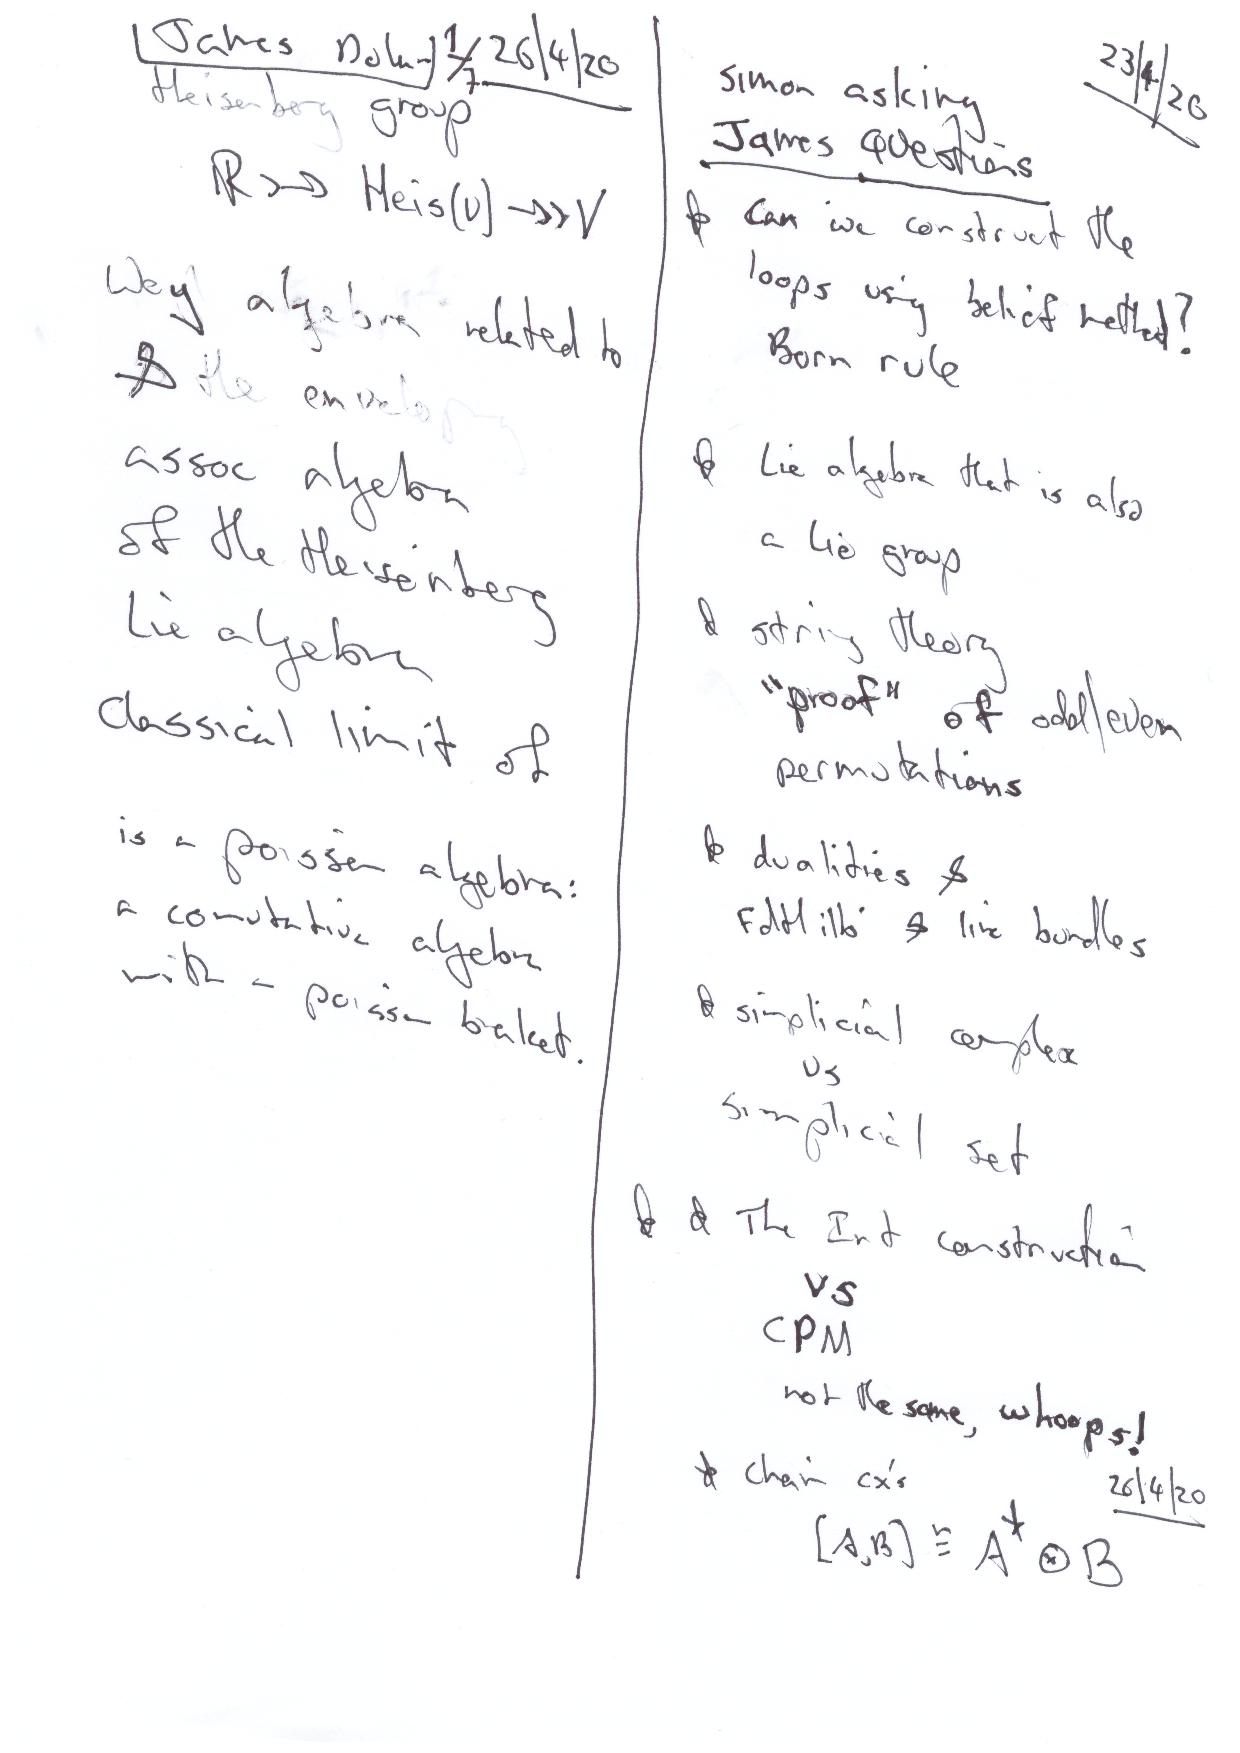 James Dolan 1/7 26/4/20
Heisenberg group
ℝ ↣ Heis(V) ↠ V
Weyl algebra related to
the enveloping
assoc algebra
of the Heisenberg
Lie algebra
Classical limit of
is a poisson algebra:
a comutative algebra
with a poisson braket.
23/4/20
Simon asking
James Questions
* Can we construct the
loops using belief method?
Born rule
* Lie algebra that is also
a Lie group
* string theory
"proof" of odd/even
permutations
* dualities &
FdHilb & line bundles
* simplicial complex
vs
simplicial set
* * The Int construction
vs
CPM
not the same, whoops!
* Chain cx's
26/4/20
[A,B] ≅ A* ⊗ B